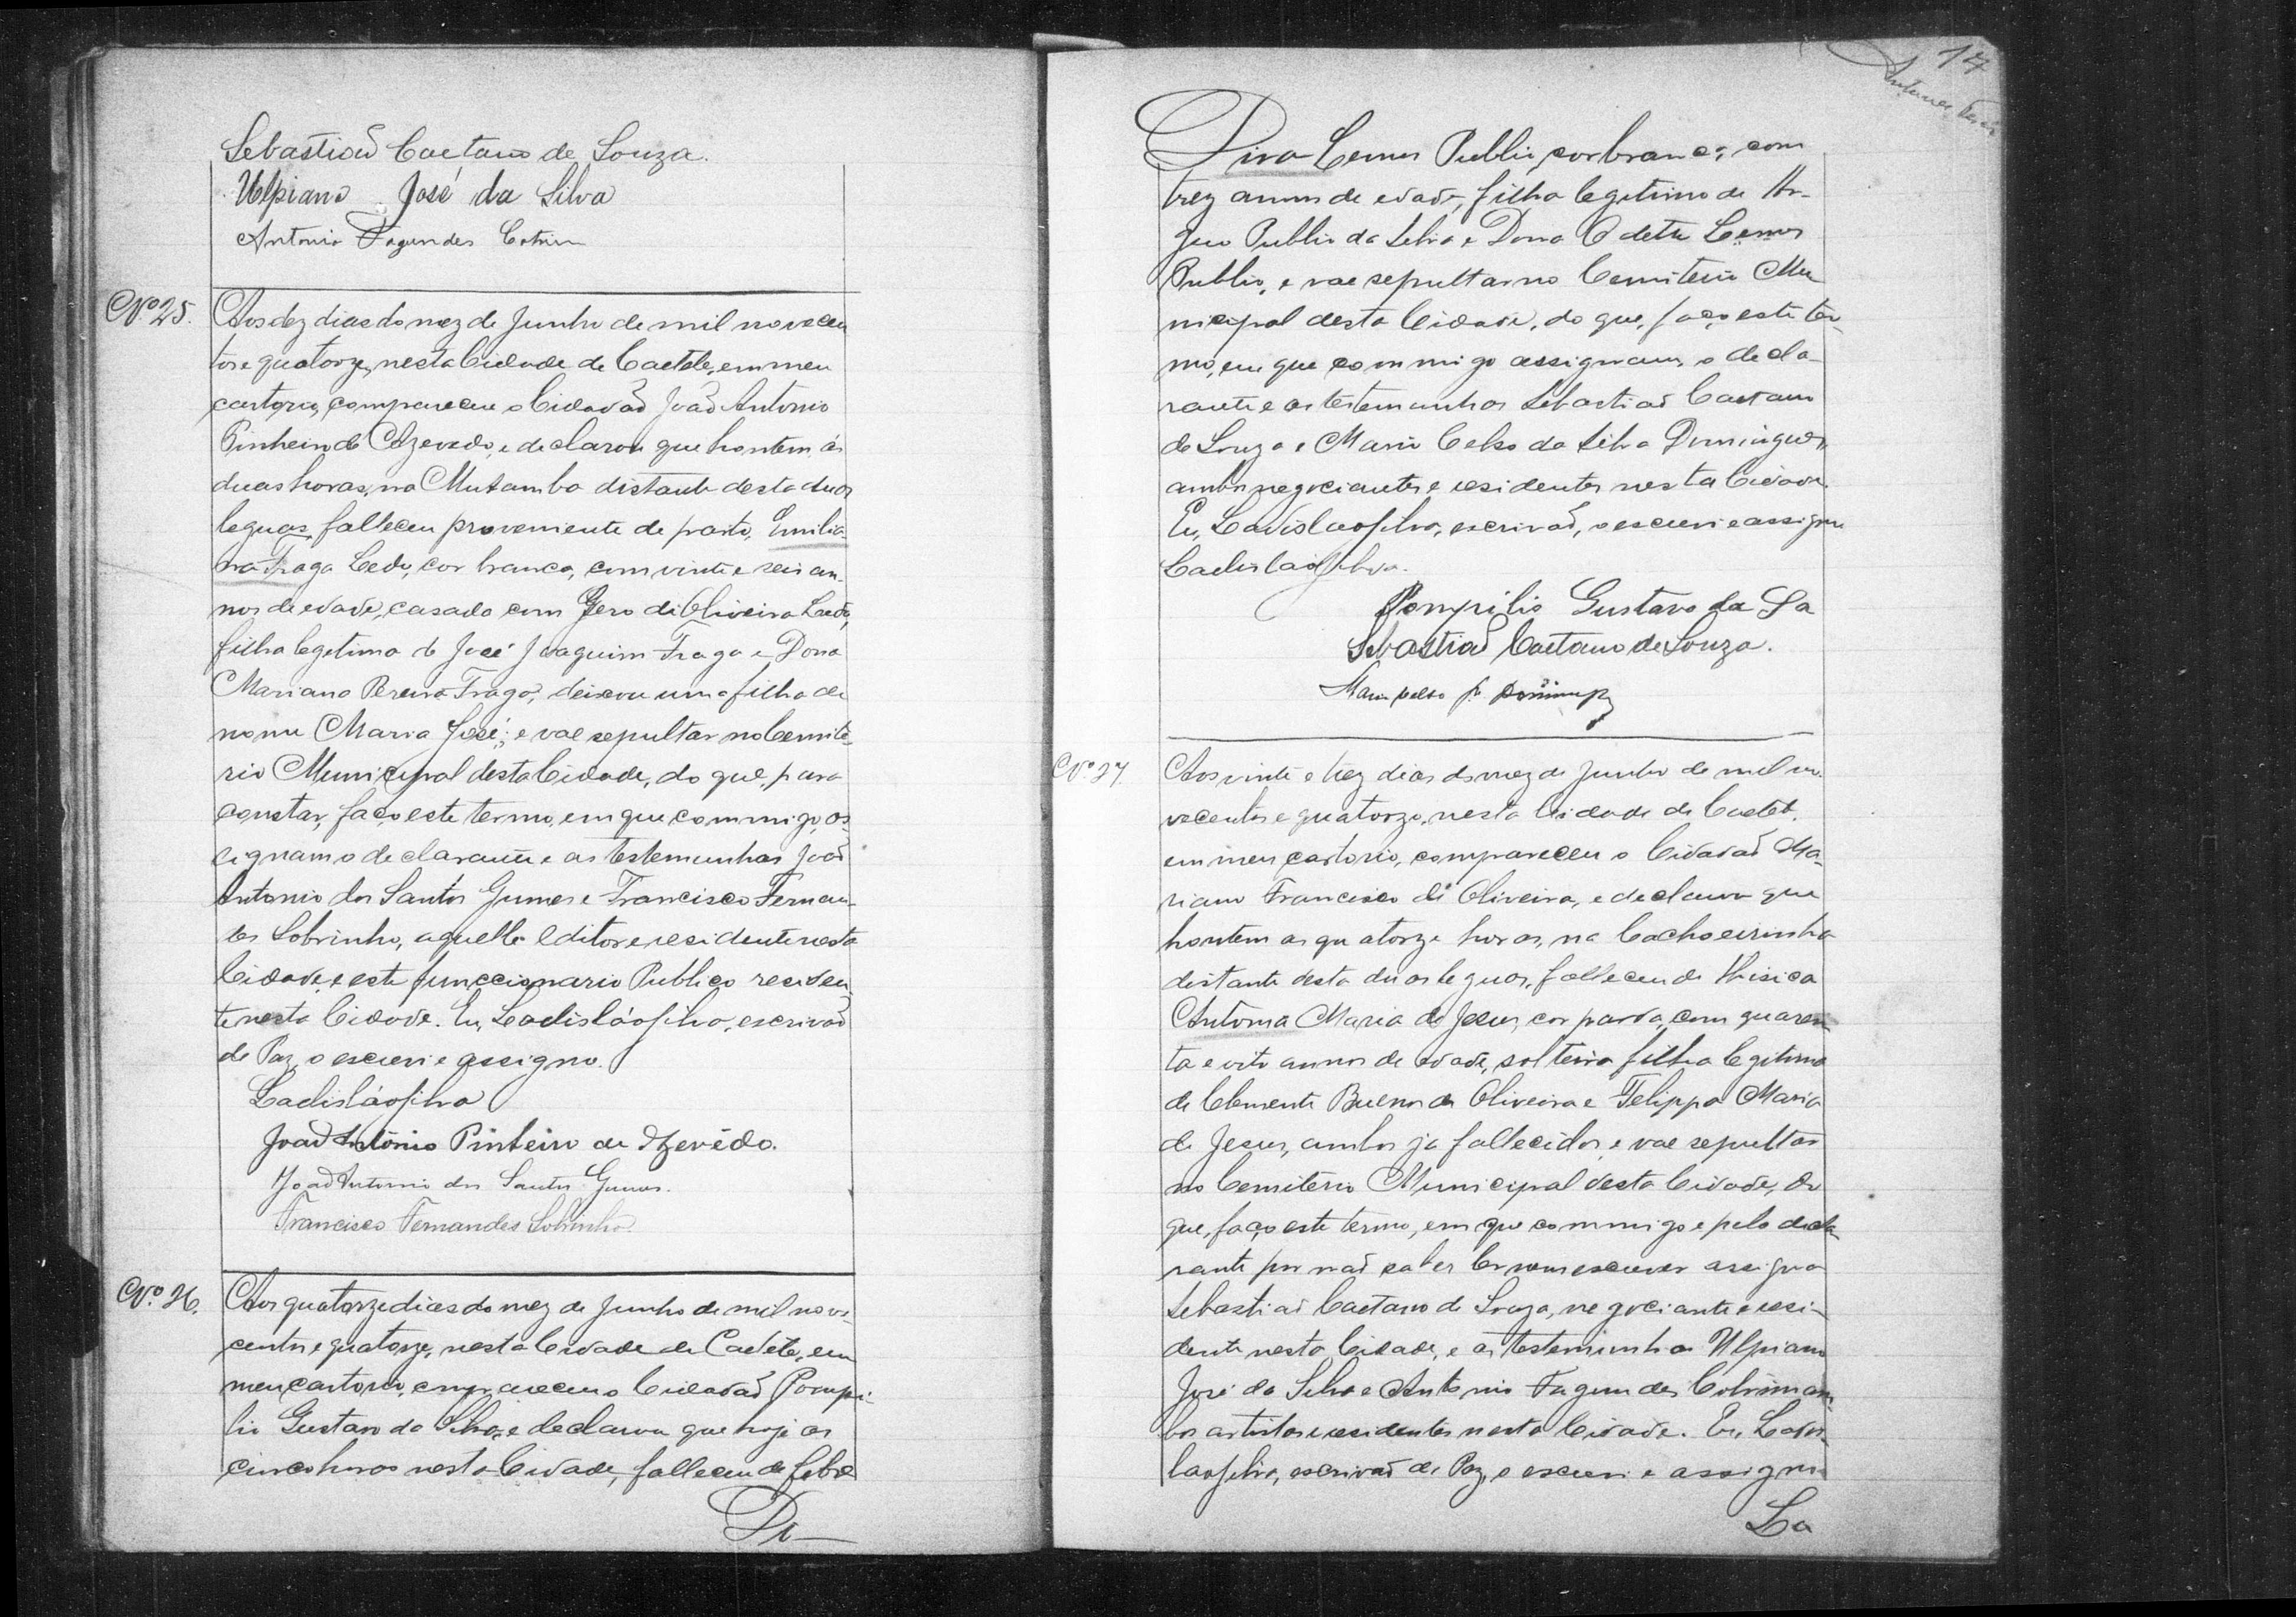 Sebastião Caetano de Souza.
Ulpiano José da Silva
Antonio Fagundes Cotrim
Nº 25.
Aos dez dias do mez de Junho de mil novecen
tos e quatorze, nesta Cidade de Caeteté, em meu
cartorio, compareceu o Cidadaõ Joaõ Antonio
Pinheiro de Azevedo, e declarou que hontem ás
duas horas, na Mutamba distante desta duas
leguas falleceu proveniente de parto, Emilia-
na Fraga Ledo, cor branca, com vinte e seis an-
nos de edade, casada com Gero de Oliveira Ledo,
filha legitima de José Joaquim Fraga e Dona
Mariana Pereira Fraga, deixou uma filha de
nome Maria José; e vae sepultar no Cemite-
rio Municipal desta Cidade, do que, para
constar, faço este termo, em que commigo, as-
signam o declarante e as testemunhas Joaõ
Antonio dos Santos Gumes e Francisco Fernan-
des Sobrinho, aquelle editor e residente nesta
Cidade, e este funccionario Publico residen-
te nesta Cidade. Eu, Ladisláo Silva, escrivaõ
de Paz, o escrevi e assigno.
Ladisláo Silva
Joaõ Antônio Pinheiro de Azevêdo.
Joaõ Antonio dos Santos Gumes.
Francisco Fernandes Sobrinho.
Nº. 26.
Aos quatorze dias do mez de Junho de mil nove-
centos e quatorze, nesta Cidade de Caeteté, em
meu cartorio, compareceu o Cidadaõ Pompi-
lio Gustavo da Silva, e declarou que hoje as
cinco horas nesta Cidade, falleceu de febre
Di
14
Diva Lemos Publio, cor branca, com
trez annos de edade, filha legitima de
Publio da Silva e Dona Odette Lemos
Publio, e vae sepultar no Cemiterio Mu
nicipal desta Cidade, do que, faço este ter-
mo, em que commigo assignam, o decla-
rante e as testemunhas Sebastiaõ Caetano
de Souza e Mario Celso da Silva Domingues,
ambos negociantes e residentes nesta Cidade.
Eu, Ladislao Silva, escrivaõ, o escrevi e assigno
Ladisláo Silva.
Pompilio Gustavo da Sa
Sebastiaõ Caetano de Souza.
Mario Celso
Nº 27.
Aos vinte e trez dias do mez de Junho de mil no-
vecentos e quatorze, nesta Cidade de Caeteté,
em meu cartorio, compareceu o Cidadaõ Ma-
riano Francisco de Oliveira, e declarou que
hontem as quatorze horas, na Cachoeirinha
distante desta duas leguas, falleceu de thisica
Antonia Maria de Jesus, cor parda, com quaren
ta e oito annos de edade, solteira filha legitima
de Clemente Bueno de Oliveira e Felippa Maria
de Jesus, ambos já fallecidos, e vae sepultar
no Cemiterio Municipal desta Cidade, do
que, faço este termo, em que commigo e pelo decla-
rante por naõ saber ler nem escrever assigna
Sebastiaõ Caetano de Souza, negociante e resi-
dente nesta Cidade, e as testemunhas Ulpiano
José da Silva e Antonio Fagundes Cotrim am-
bos artistas e residentes nesta Cidade. Eu, Ladis-
lao Silva, escrivaõ de Paz, o escrevi e assigno
La